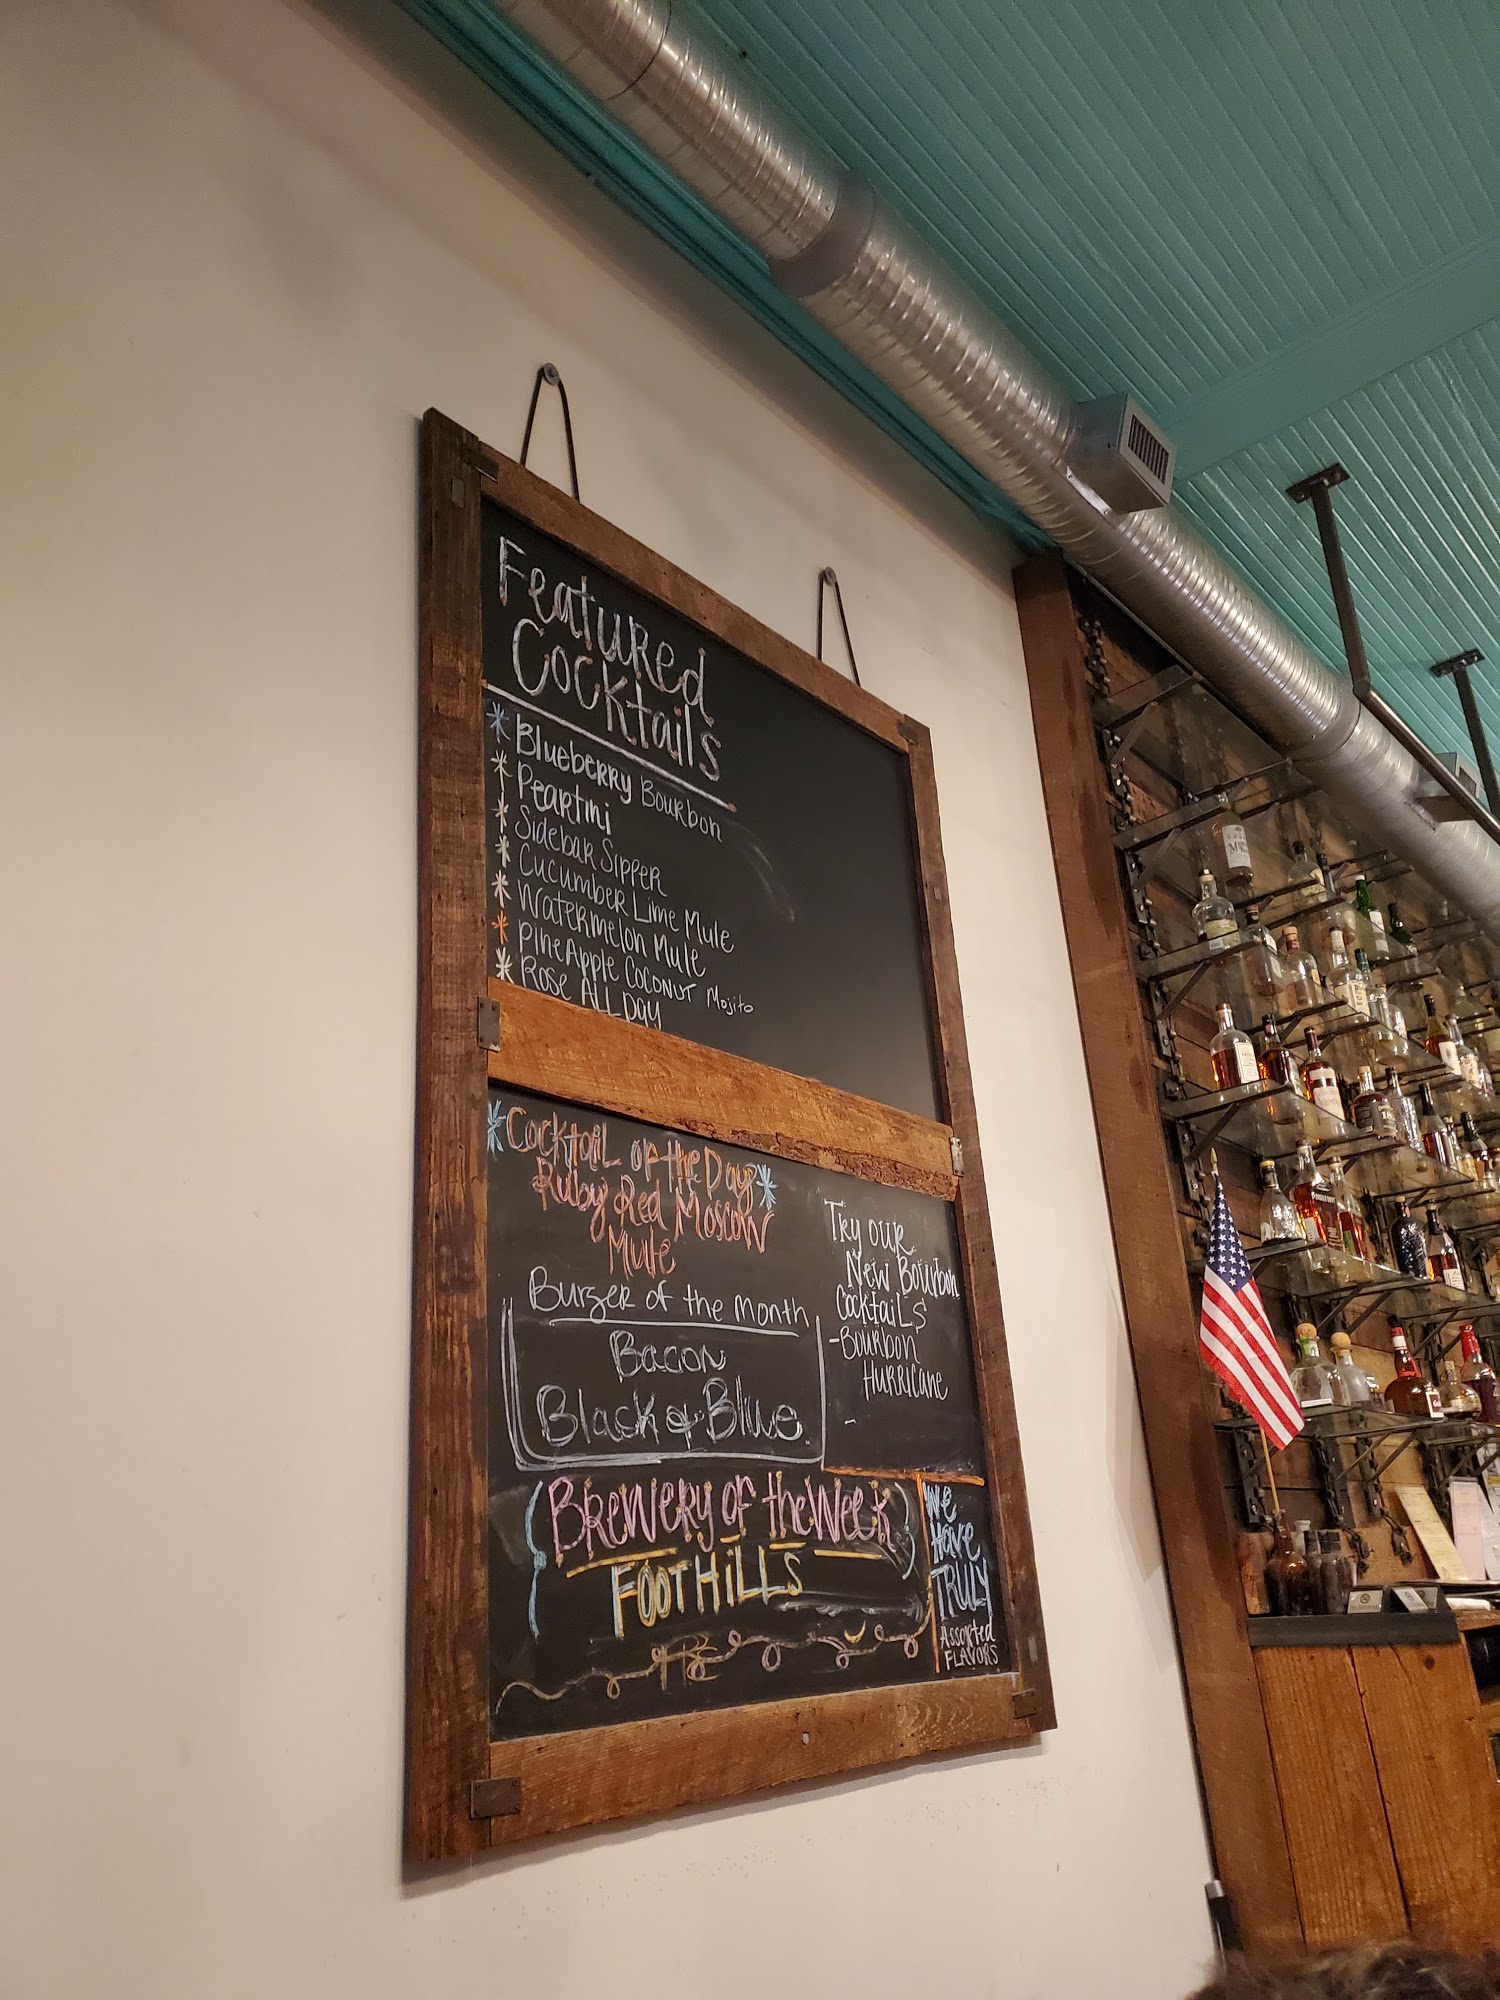 Featured
Cocktails
* Blueberry Bourbon
* Peartini
* Sidebar Sipper
* Cucumber Lime Mule
* Watermelon Mule
* PineApple Coconut Mojito
* Rose ALL Day
*Cocktail of the Day*
Ruby Red Moscow
Mule
Burger of the Month
Bacon
Black & Blue
Try our
New Bourbon
Cocktails
-Bourbon
Hurricane
-
Brewery of the Week
FOOTHiLLS
We
Have
TRULY
Assorted
FLAVORS